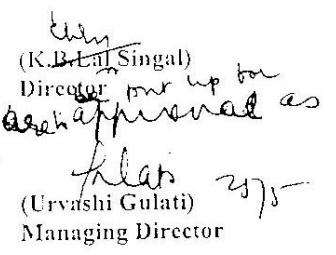 (K.B.Lal Singal)
Director
put up for
approval as
Gulati 25/5
(Urvashi Gulati)
Managing Director